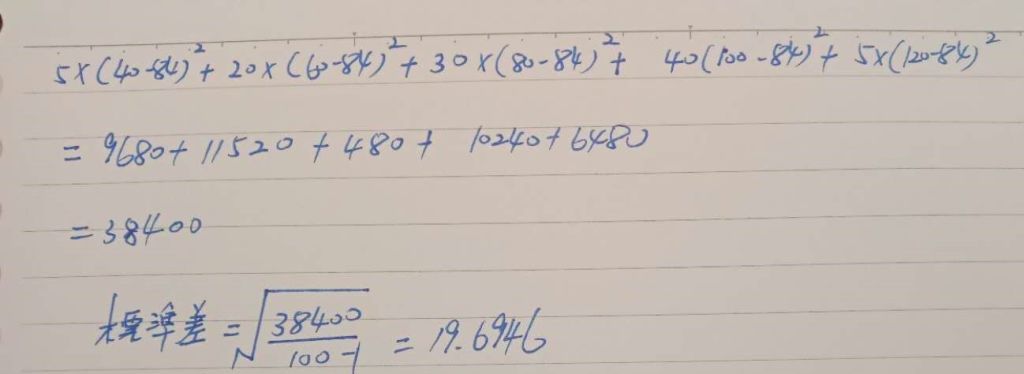 5×(40-84)²+20×(60-84)²+30×(80-84)²+ 40(100-84)²+5×(120-84)²
=9680+11520+480+ 10240+6480
=38400
標準差=√(38400/(100-1)) =19.6946